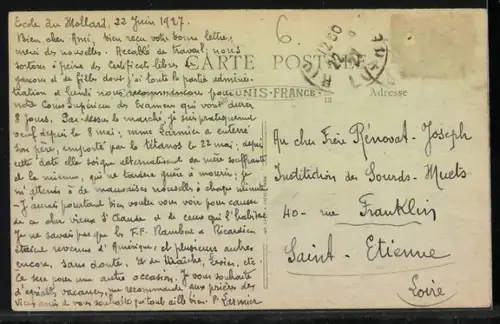 Ecole du Mollard, 22 Juin 1927.
Bien cher Ami, bien reçu votre bonne lettre,
merci des nouvelles. Accablé de travail; nous
sortons à peine des Certificats libres de
garçons et de filles dont j'ai toute la partie adminis-
tration et lundi nous recommençons pour
notre Cours Supérieur des Examens qui vont durer
8 jours. Par-dessus le marché, je suis pratiquement
veuf depuis le 8 mai; mme Larmier a enterré
son père, emporté par le tétanos le 22 mai; depuis
cette date elle soigne alternativement sa mère souffrante
et la mienne, qui ne tardera guère à mourir; je
m'attends à de mauvaises nouvelles à chaque minute
- J'aurai pourtant bien voulu vous voir pour causer
de ce cher vieux St Claude et de ceux qui l'habitent
Je ne savais pas que les F.F. Rambert et Ricardien
étaient revenus d'Amérique, et plusieurs autres
encore, sans doute,
Ce sera pour une autre occasion. Je vous souhaite
d'agréables vacances, me recommande aux prières des
vieux amis et vous souhaite que tout aille bien. P. Larmier
6
CARTE POSTALE
UNIS-FRANCE
Adresse
12 30
22
Au cher Frère Rénovat-Joseph
Institution des Sourds-Muets
40 - rue Franklin
Saint-Etienne
Loire